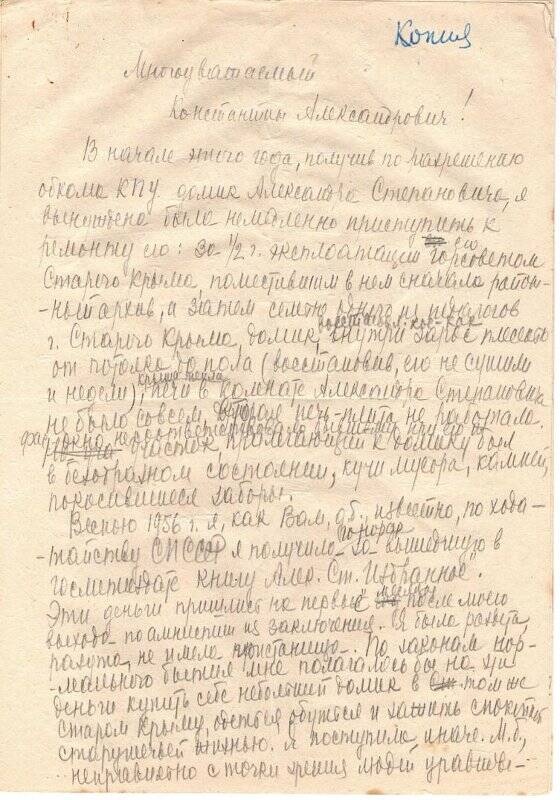 Копия
Многоуважаемый
Константин Александрович!
В начале этого года, получив по разрешению
обкома КПУ домик Александра Степановича, я
вынуждена была немедленно приступить к
ремонту его: за 1/2 г. эксплоатации его Горсоветом
Старого Крыма, поместившим в нем сначала район-
-ный архив, а затем семью одного из педагогов
восстановл. кое-как
г. Старого Крыма, домик внутри зарос плесенью
от потолка до пола (восстановив, его не сушили
и недели), крыша текла
печи в комнате Александра Степановича
не было совсем, вторая печь-плита не работала.
участок, прилегающий к домику был
в безобразном состоянии, кучи мусора, камней,
покосившиеся заборы.
Весною 1956 г. я, как Вам, д.б., известно, по хода-
-тайству СПССР я получила гонорар за вышедшую в
Гослитиздате книгу Алек. Ст. "Избранное".
Эти деньги пришли на первые месяцы после моего
выхода по амнистии из заключения. Я была разбита,
разута, не имела пристанища. По законам нор-
-мального бытия мне полагалось бы на эти
деньги купить себе небольшой домик в том же
Старом Крыму, одеться обуться и зажить спокойной
старушечьей жизнью. Я поступила иначе. М.б.,
неправильно с точки зрения людей уравнове-